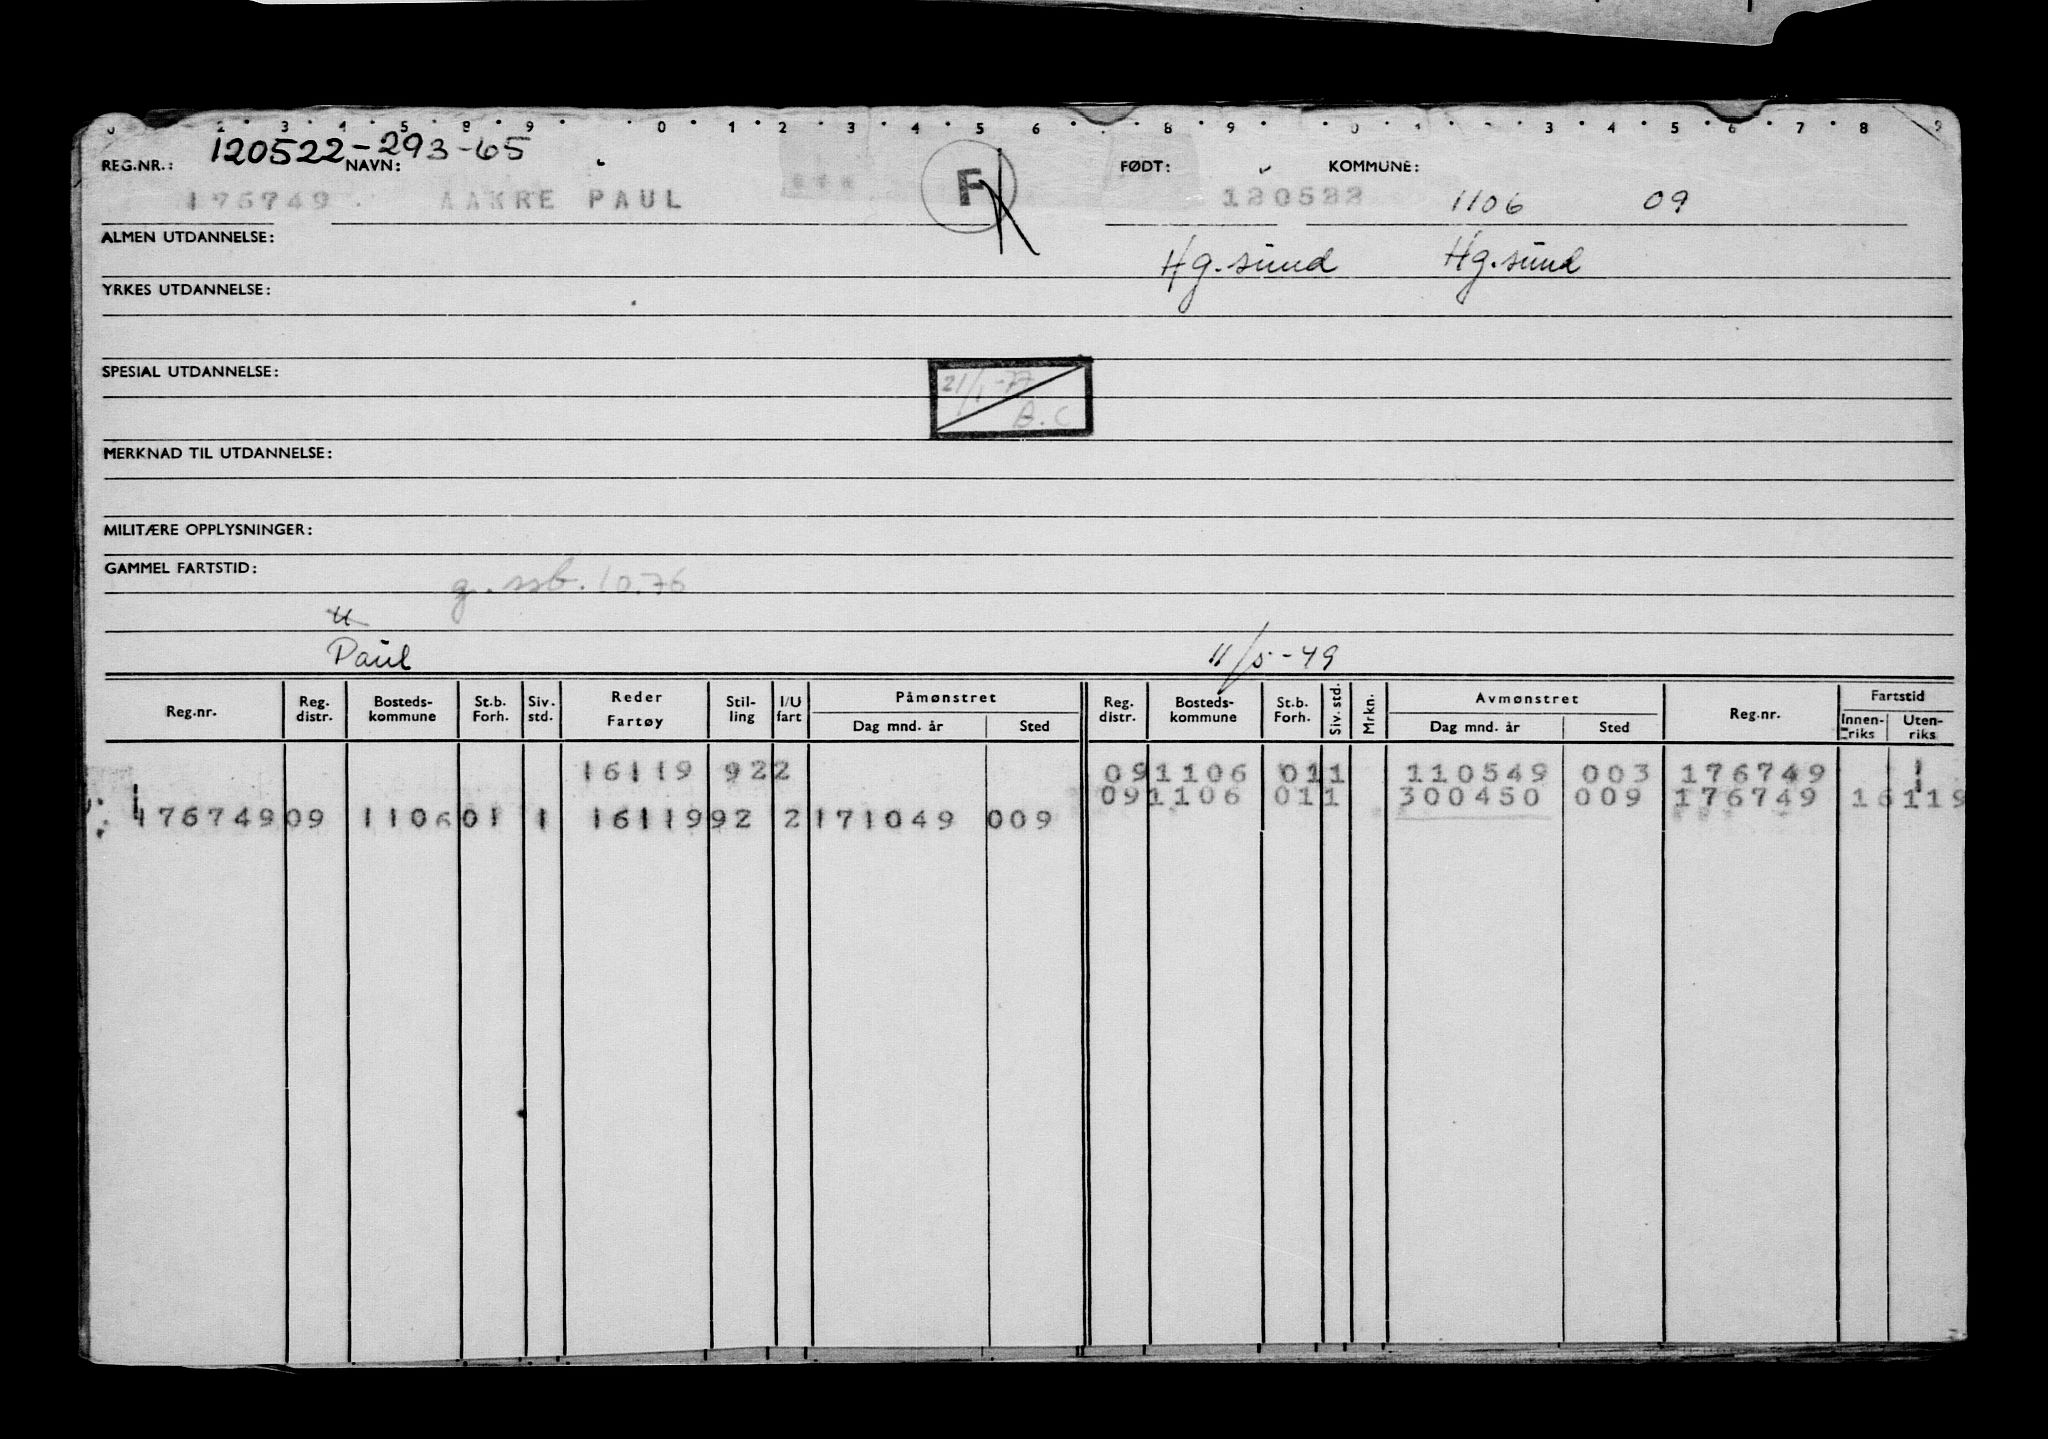 120522-293-65
REG.NR.: NAVN: FØDT: KOMMUNE:
176749 AAKRE PAUL F 120522 1106 09
ALMEN UTDANNELSE: Hg.sund Hg.sund
YRKES UTDANNELSE:
SPESIAL UTDANNELSE: 21/1-77
B.C
MERKNAD TIL UTDANNELSE:
MILITÆRE OPPLYSNINGER:
GAMMEL FARTSTID:
g. ssb. 10.76
Paul 11/5-49
Reg.nr. Reg. distr. Bosteds-kommune St.b. Forh. Siv. std. Reder Fartøy Stil-ling I/U fart Påmønstret Dag mnd. år Sted Reg. distr. Bosteds-kommune St.b. Forh. Siv. std. Mrkn. Avmønstret Dag mnd. år Sted Reg.nr. Fartstid Innen-riks Uten-riks
16119 922 091106 011 110549 003 176749 1
091106 011 300450 009 176749 16119
176749 09 1106 01 1 16119 92 2 171049 009